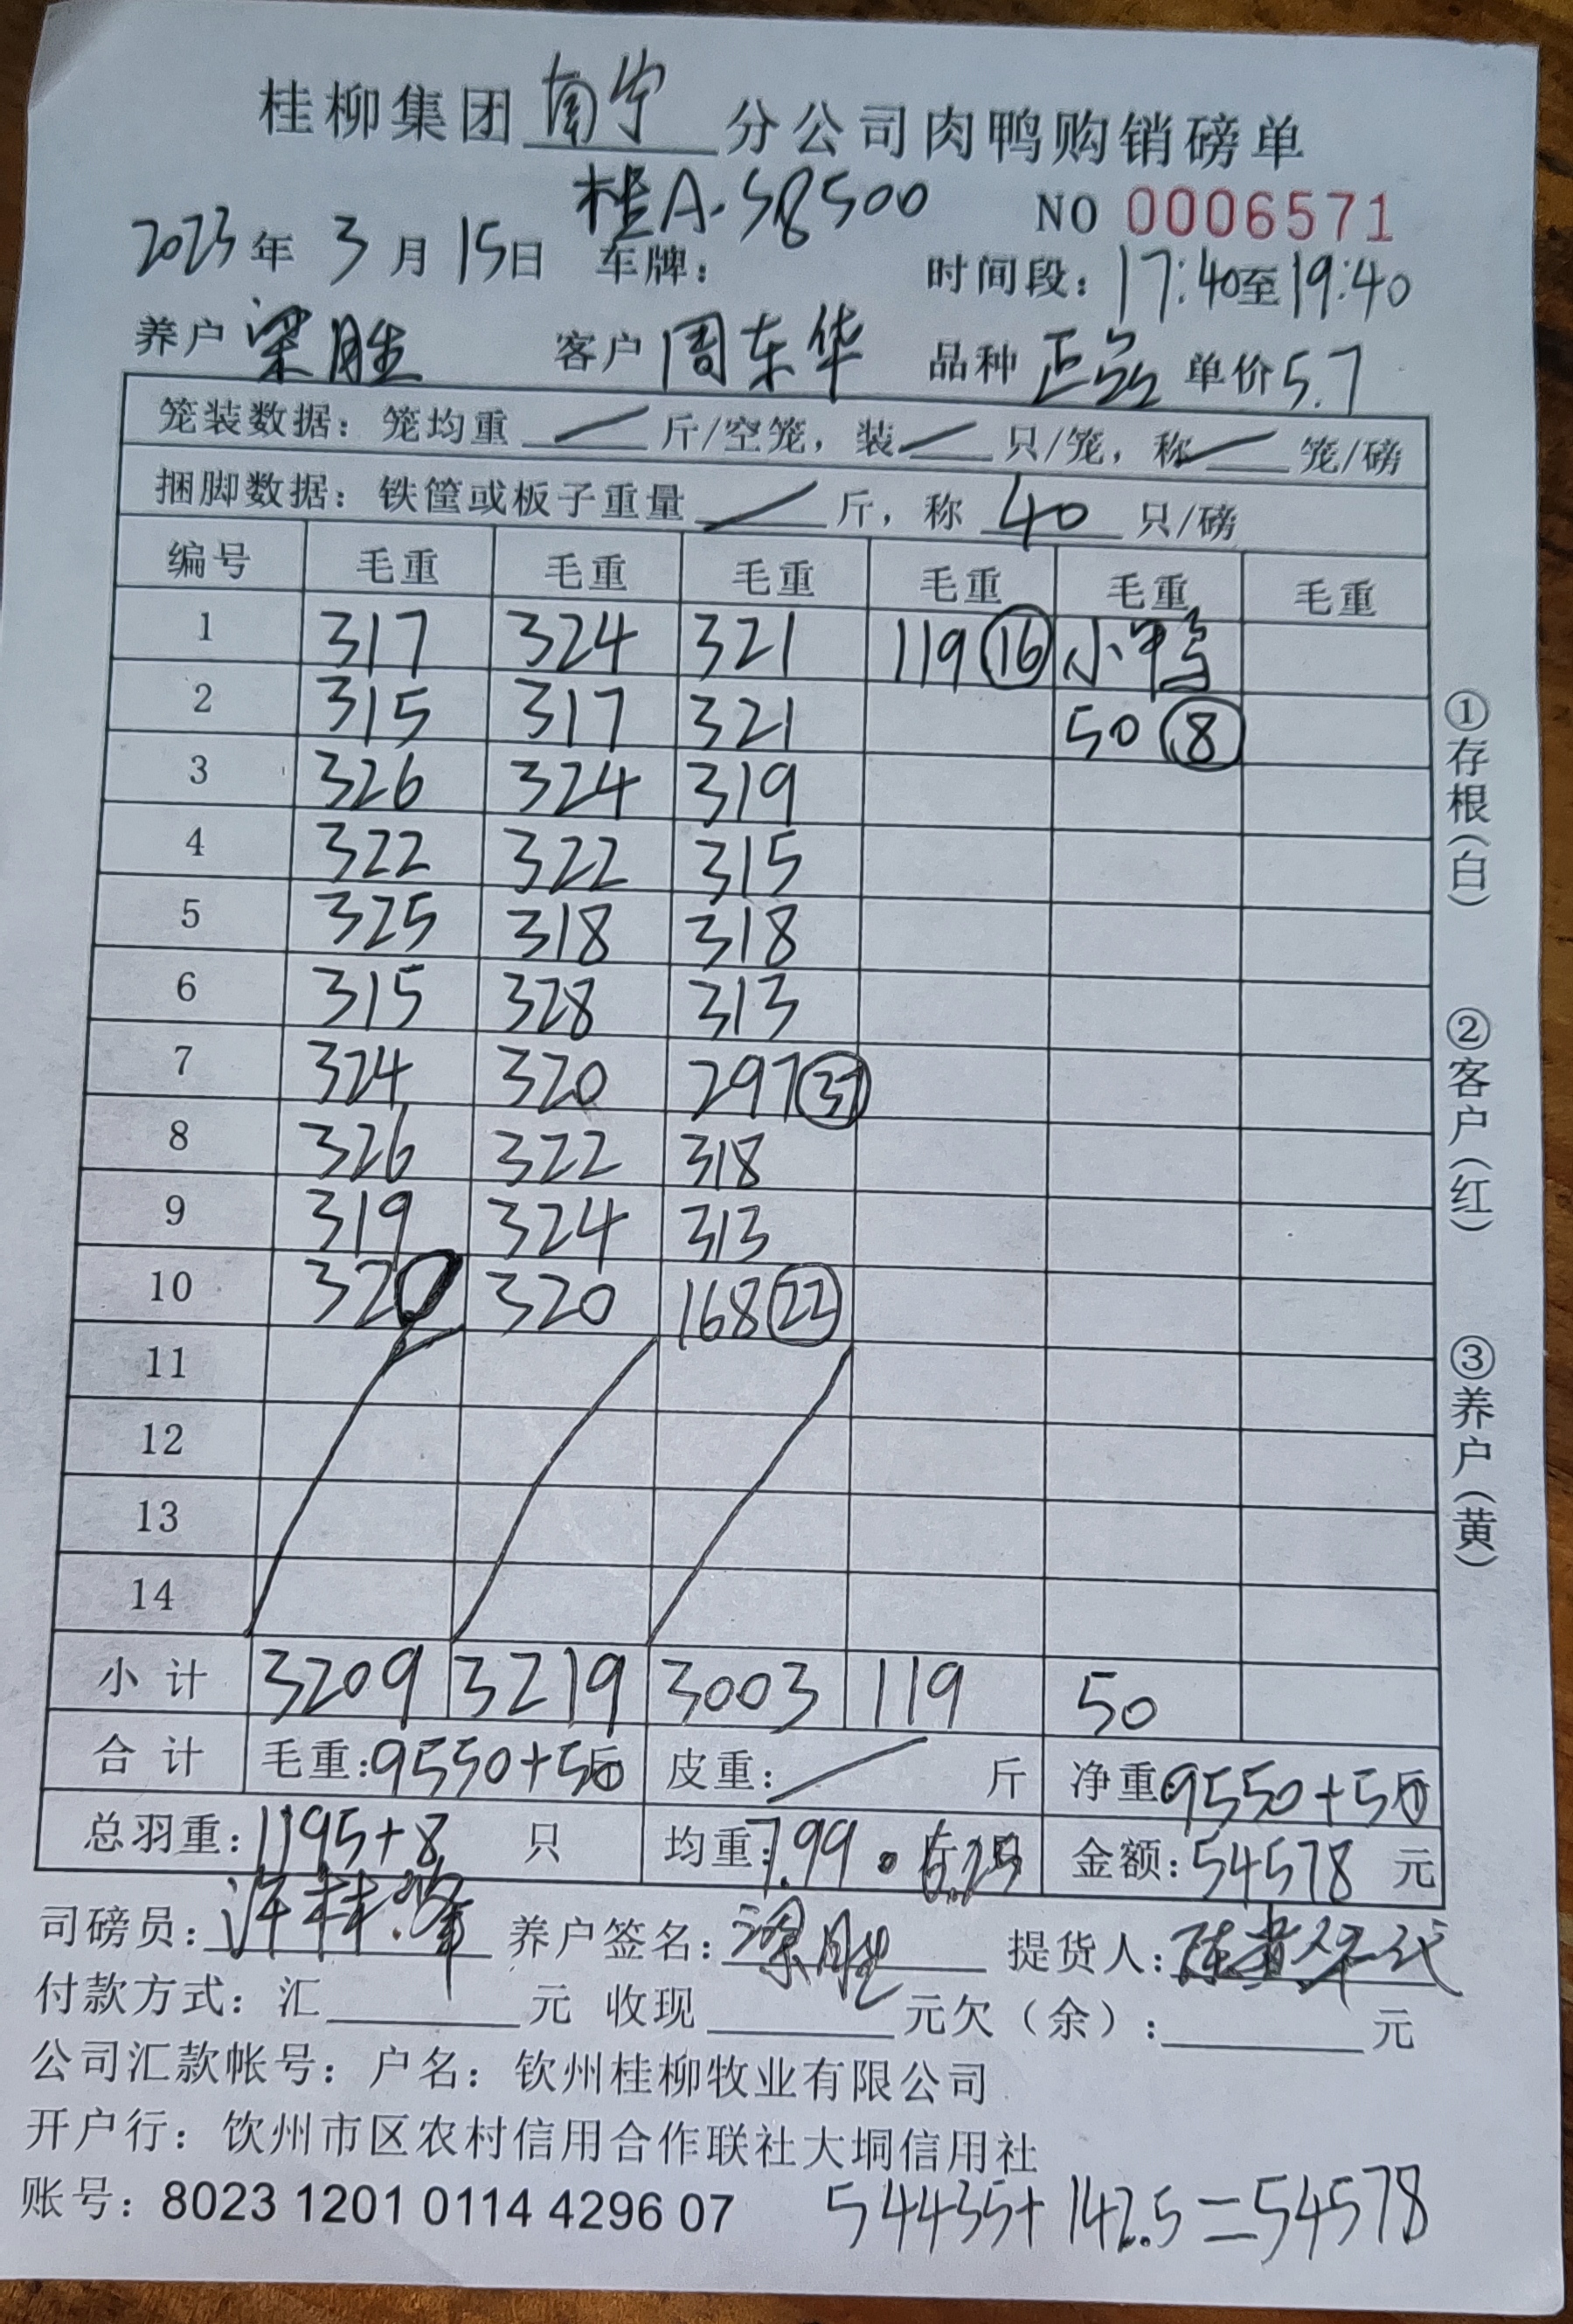 桂柳集团南宁分公司肉鸭购销磅单
桂A·S8500 NO 0006571
2023年3月15日 车牌: 时间段: 17:40至19:40
养户 梁胜 客户 周东华 品种 正品 单价5.7
笼装数据: 笼均重 / 斤/空笼, 装 / 只/笼, 称 / 笼/磅
捆脚数据: 铁筐或板子重量 / 斤, 称 40 只/磅
编号 毛重 毛重 毛重 毛重 毛重 毛重
1 317 324 321 119 ⑯ 小鸭
2 315 317 321 50 ⑧
3 326 324 319
4 322 322 315
5 325 318 318
6 315 328 313
7 324 320 297 ㊲
8 326 322 318
9 319 324 313
10 320 320 168 ㉒
11
12
13
14
小计 3209 3219 3003 119 50
合计 毛重:9550+50斤 皮重: / 斤 净重:9550+50斤
总羽重:1195+8 只 均重:7.99 · 6.25斤 金额:54578 元
司磅员: 许桂 养户签名: 梁胜 提货人: 代
付款方式: 汇 元 收现 元欠(余): 元
公司汇款帐号: 户名: 钦州桂柳牧业有限公司
开户行: 钦州市区农村信用合作联社大垌信用社
账号: 8023 1201 0114 4296 07 54435+142.5=54578
①存根(白)
②客户(红)
③养户(黄)